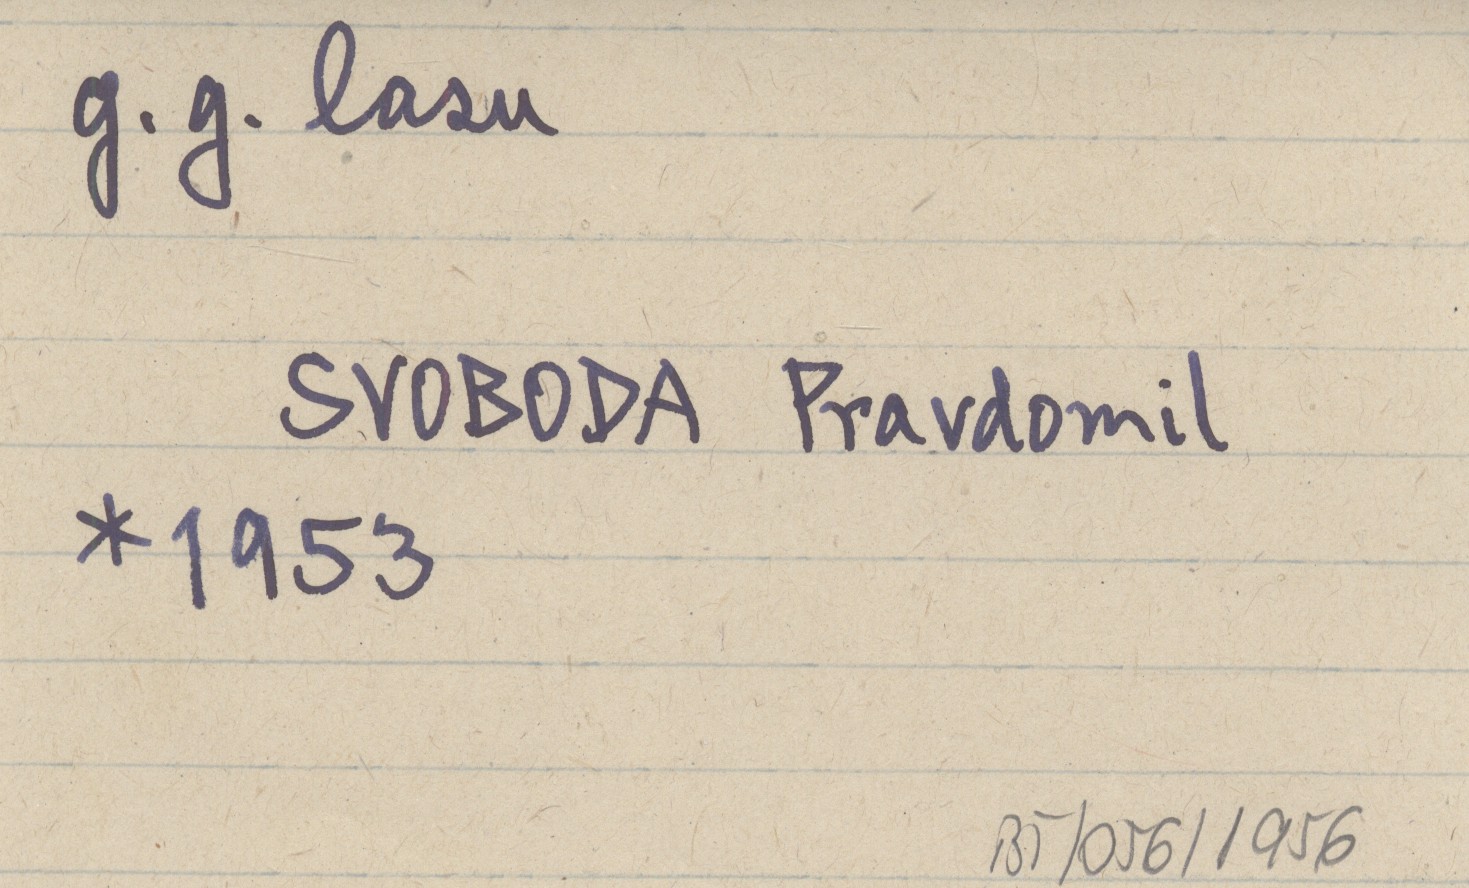 g. g. lasu
SVOBODA Pravdomil
*1953
BT/056/1956